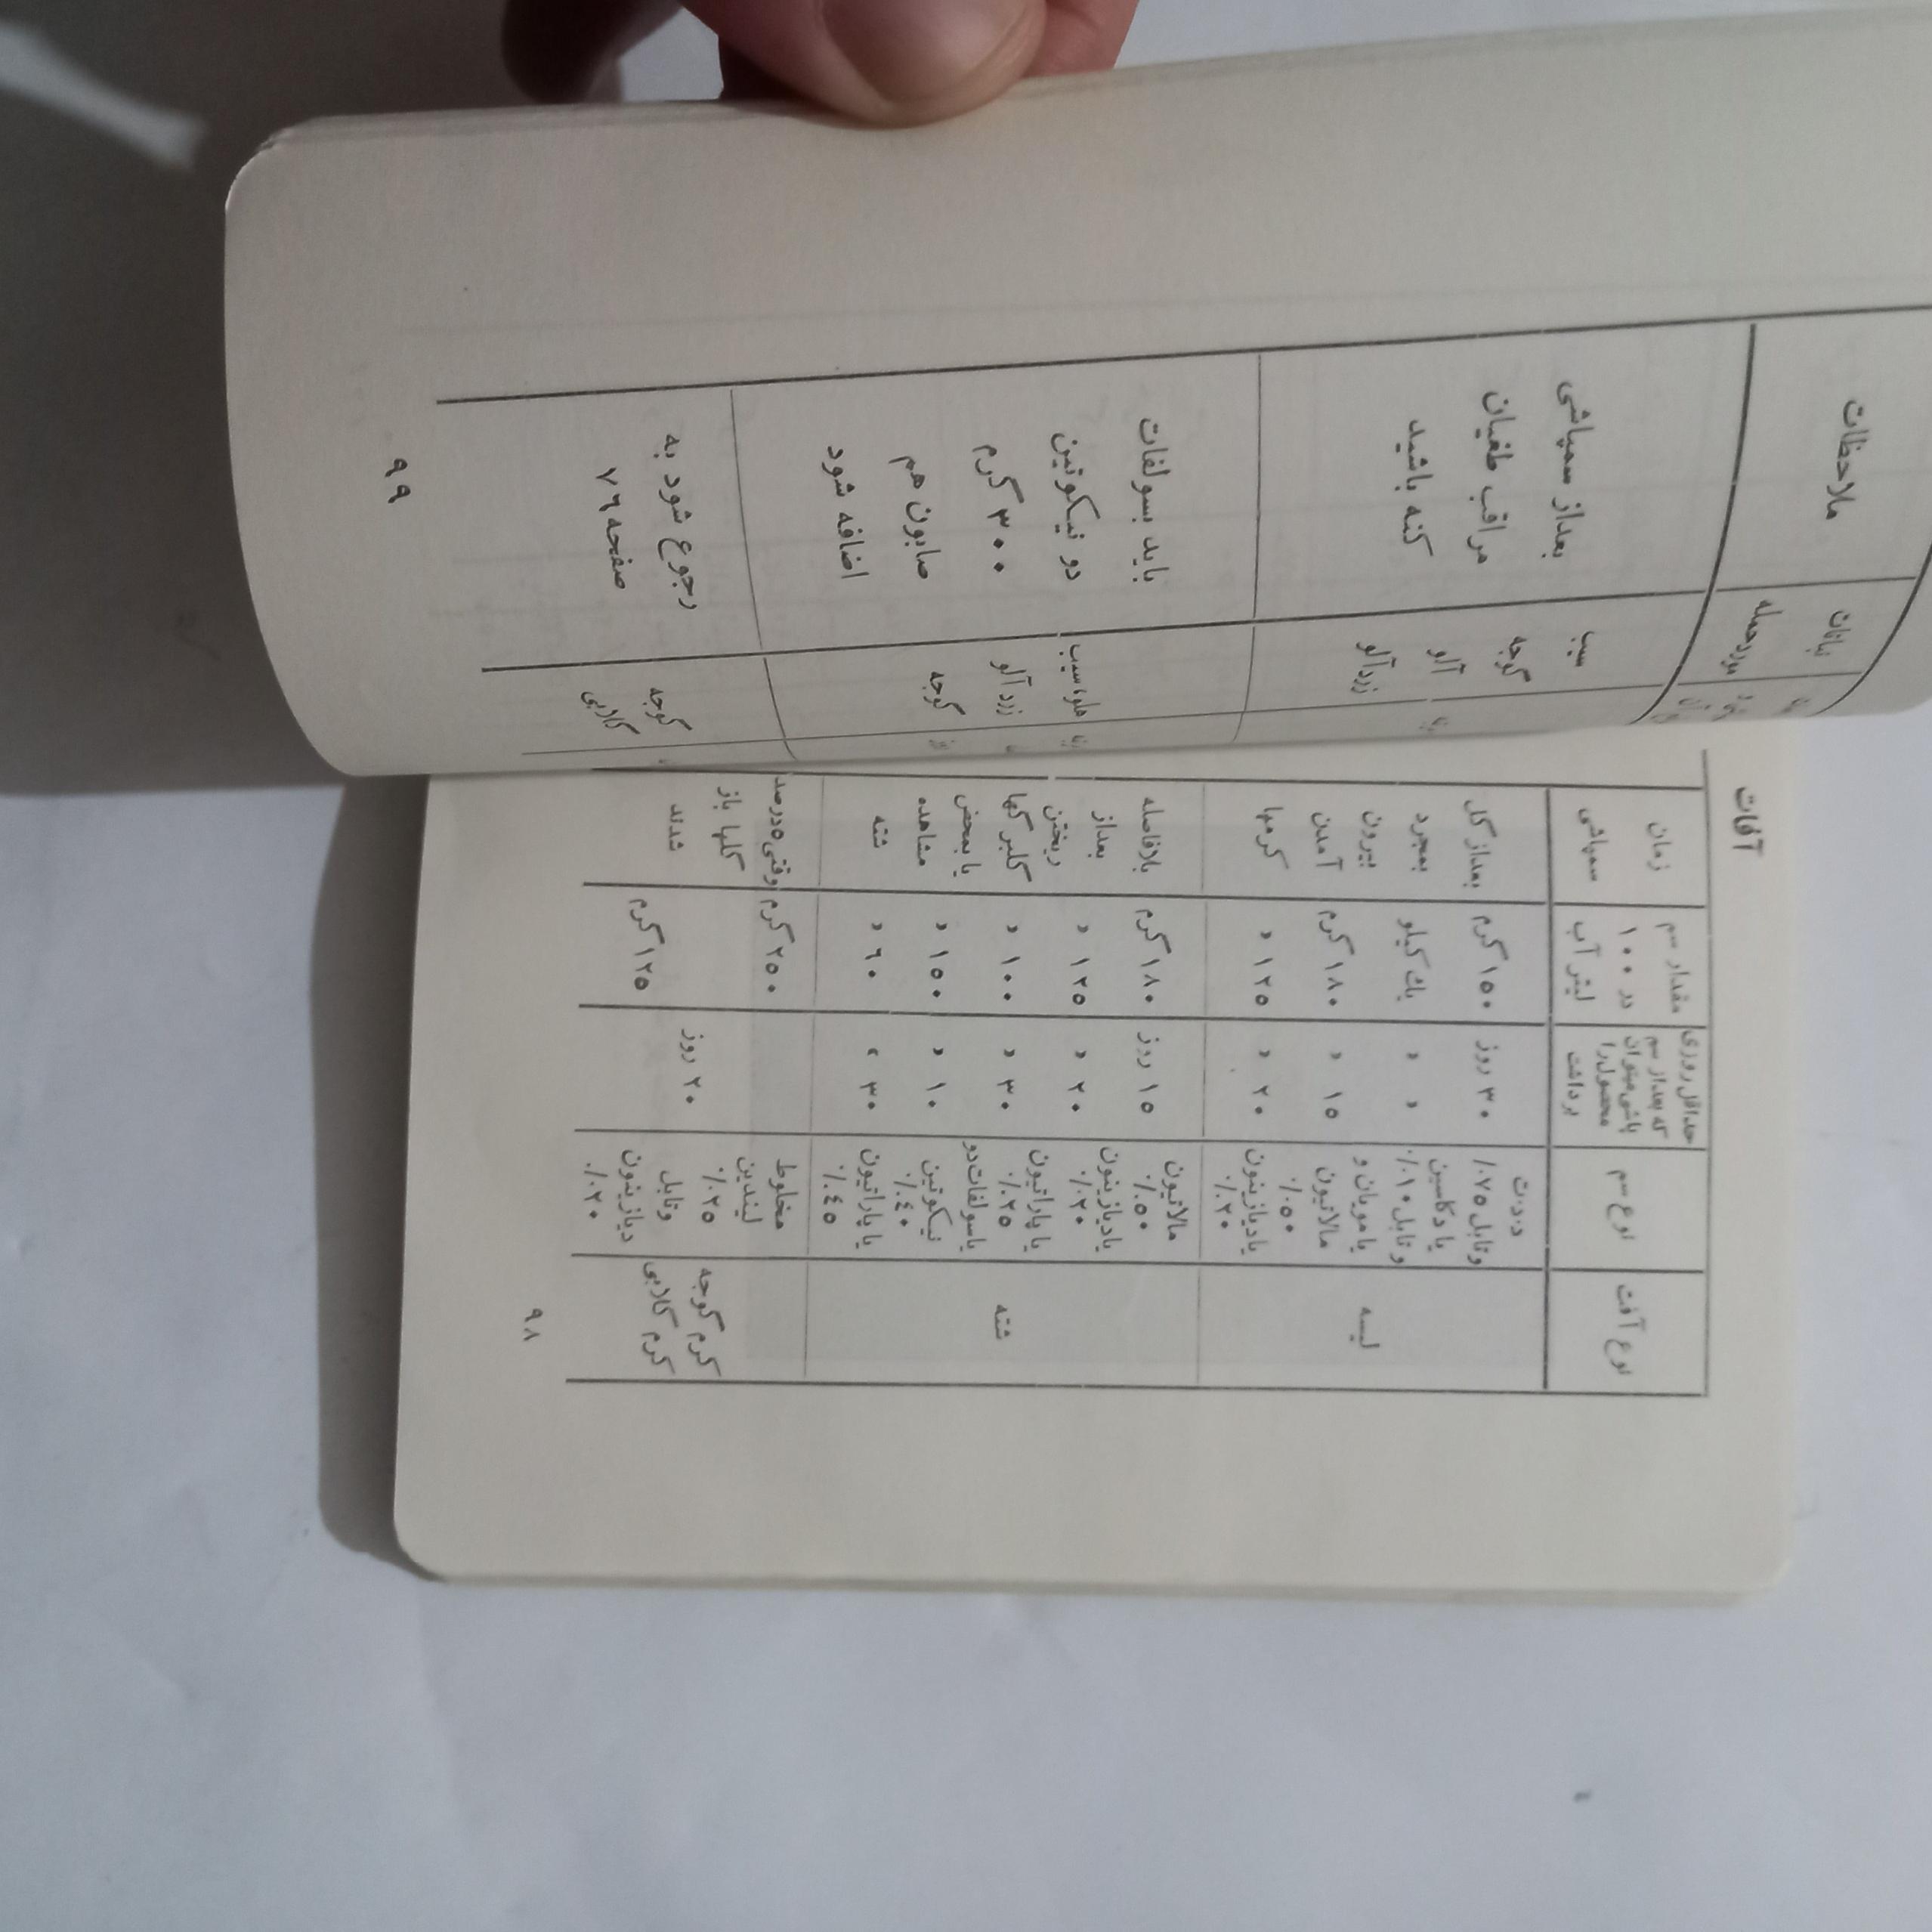 آفات
نوع آفت
نوع سم
حداقل روزی
که بعد از سم
پاشی میتوان
محصول را
برداشت
مقدار سم
در ۱۰۰
لیتر آب
زمان
سمپاشی
لیسه
د.د.ت
وتابل ۷۵٪
یا دکاسین
وتابل ۱۰٪
یا مویان و
مالاتیون
۵۰٪
یا دیازینون
۲۰٪
۳۰ روز
» »
۱۵ »
۲۰ »
۱۵۰ گرم
یك کیلو
۱۸۰ گرم
۱۲۵ »
بعد از گل
بمجرد
بیرون
آمدن
کرمها
شته
مالاتیون
۵۰٪
یا دیازینون
۲۰٪
یا پاراتیون
۲۵٪
یا سولفات دو
نیکوتین
۴۰٪
یا پاراتیون
۴۵٪
۱۵ روز
۲۰ »
۳۰ »
۱۰ »
۳۰ »
۱۸۰ گرم
۱۲۵ »
۱۰۰ »
۱۵۰ »
۶۰ »
بلافاصله
بعد از
ریختن
گلبرگها
یا بمحض
مشاهده
شته
کرم گوجه
کرم گلابی
مخلوط
لیندین
۲۵٪
وتابل
دیازینون
۲۰٪
۲۰ روز
۲۵۰ گرم
۱۲۵ گرم
وقتی ۵ درصد
گلها باز
شدند
۹۸
نباتات
مورد حمله
ملاحظات
سیب
گوجه
آلو
زردآلو
بعد از سمپاشی
مراقب طغیان
کنه باشید
هلو، سیب
زردآلو
گوجه
باید بسولفات
دو نیکوتین
۳۰۰ گرم
صابون هم
اضافه شود
گوجه
گلابی
رجوع شود به
صفحه ۷۶
۹۹